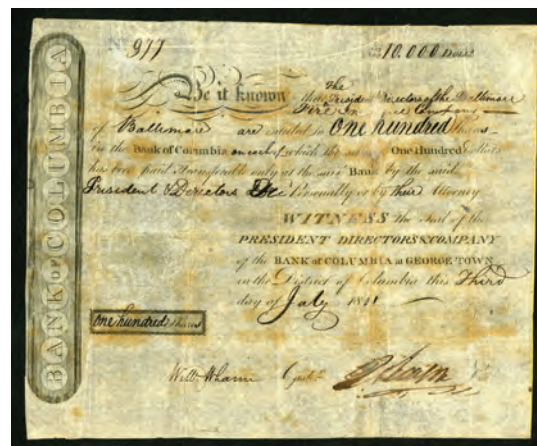 BANK of COLUMBIA
977
10.000
Be it known that The President & Directors of the Baltimore
Fire Company
of Baltimore are entitled to One hundred Shares
in the Bank of Columbia on each of which the sum of One Hundred Dollars
has been paid transferable only at the said Bank by the said
President & Directors Personally or by their Attorney
WITNESS the Seal of the
PRESIDENT DIRECTORS & COMPANY
of the BANK of COLUMBIA at GEORGE TOWN
in the District of Columbia this Third
day of July 1811
One hundred Shares
Wm Whann